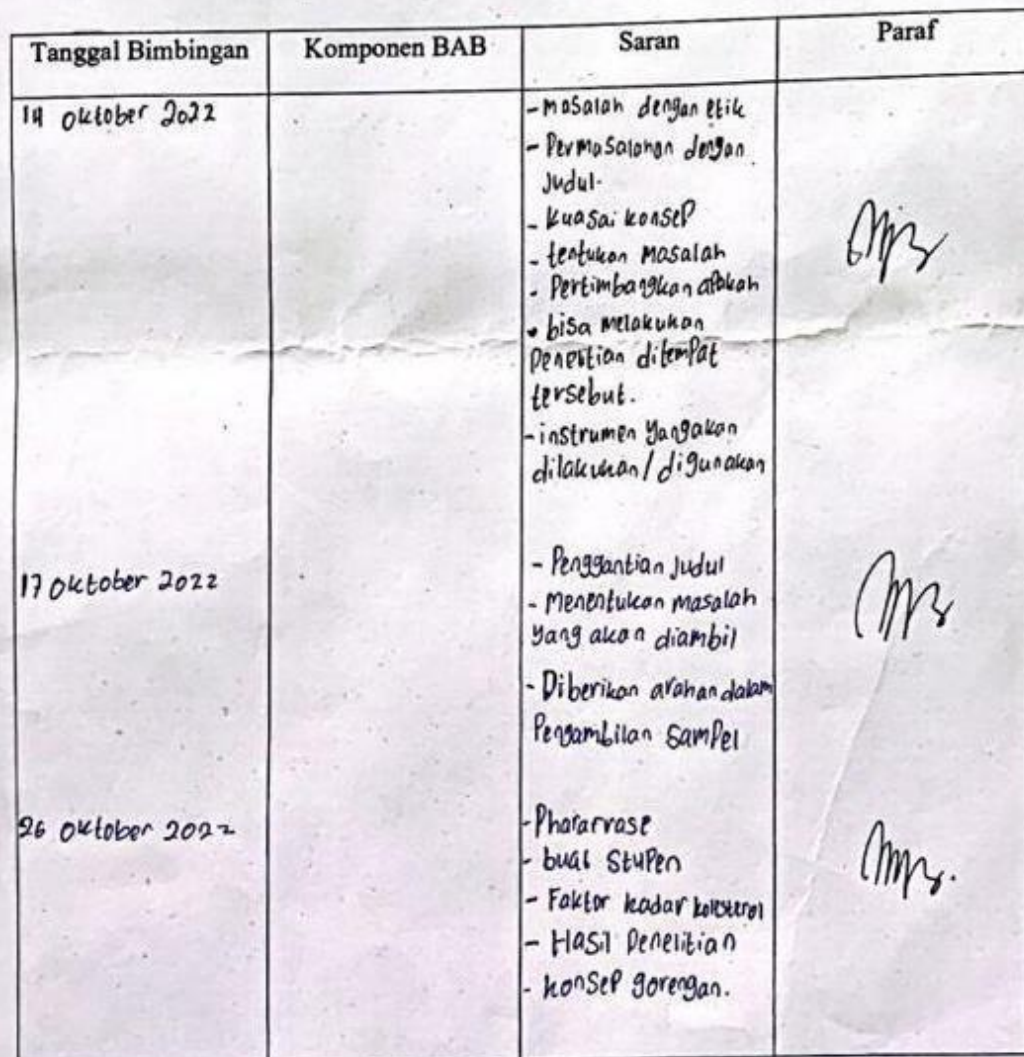 Tanggal Bimbingan Komponen BAB Saran Paraf
14 Oktober 2022
- masalah dengan etik
- Permasalahan dengan
Judul.
- kuasai konsep
- tentukan masalah
- Pertimbangkan apakah
• bisa melakukan
penelitian ditempat
tersebut.
- instrumen yang akan
dilakukan / digunakan
17 Oktober 2022
- Penggantian Judul
- Menentukan masalah
yang akan diambil
- Diberikan arahan dalam
Pengambilan sampel
26 Oktober 2022
- Phararvase
- buat Stupen
- Faktor kadar kolesterol
- Hasil Penelitian
- konsep gorengan.